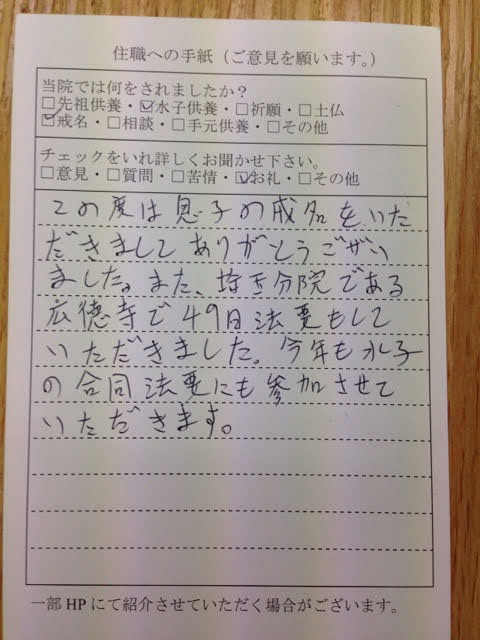 住職への手紙（ご意見を願います。）
当院では何をされましたか？
□先祖供養・☑水子供養・□祈願・□土仏
☑戒名・□相談・□手元供養・□その他
チェックをいれ詳しくお聞かせ下さい。
□意見・□質問・□苦情・☑お礼・□その他
この度は息子の戒名をいた
だきましてありがとうござい
ました。また、埼玉分院である
広徳寺で49日法要もして
いただきました。今年も水子
の合同法要にも参加させて
いただきます。
一部HPにて紹介させていただく場合がございます。